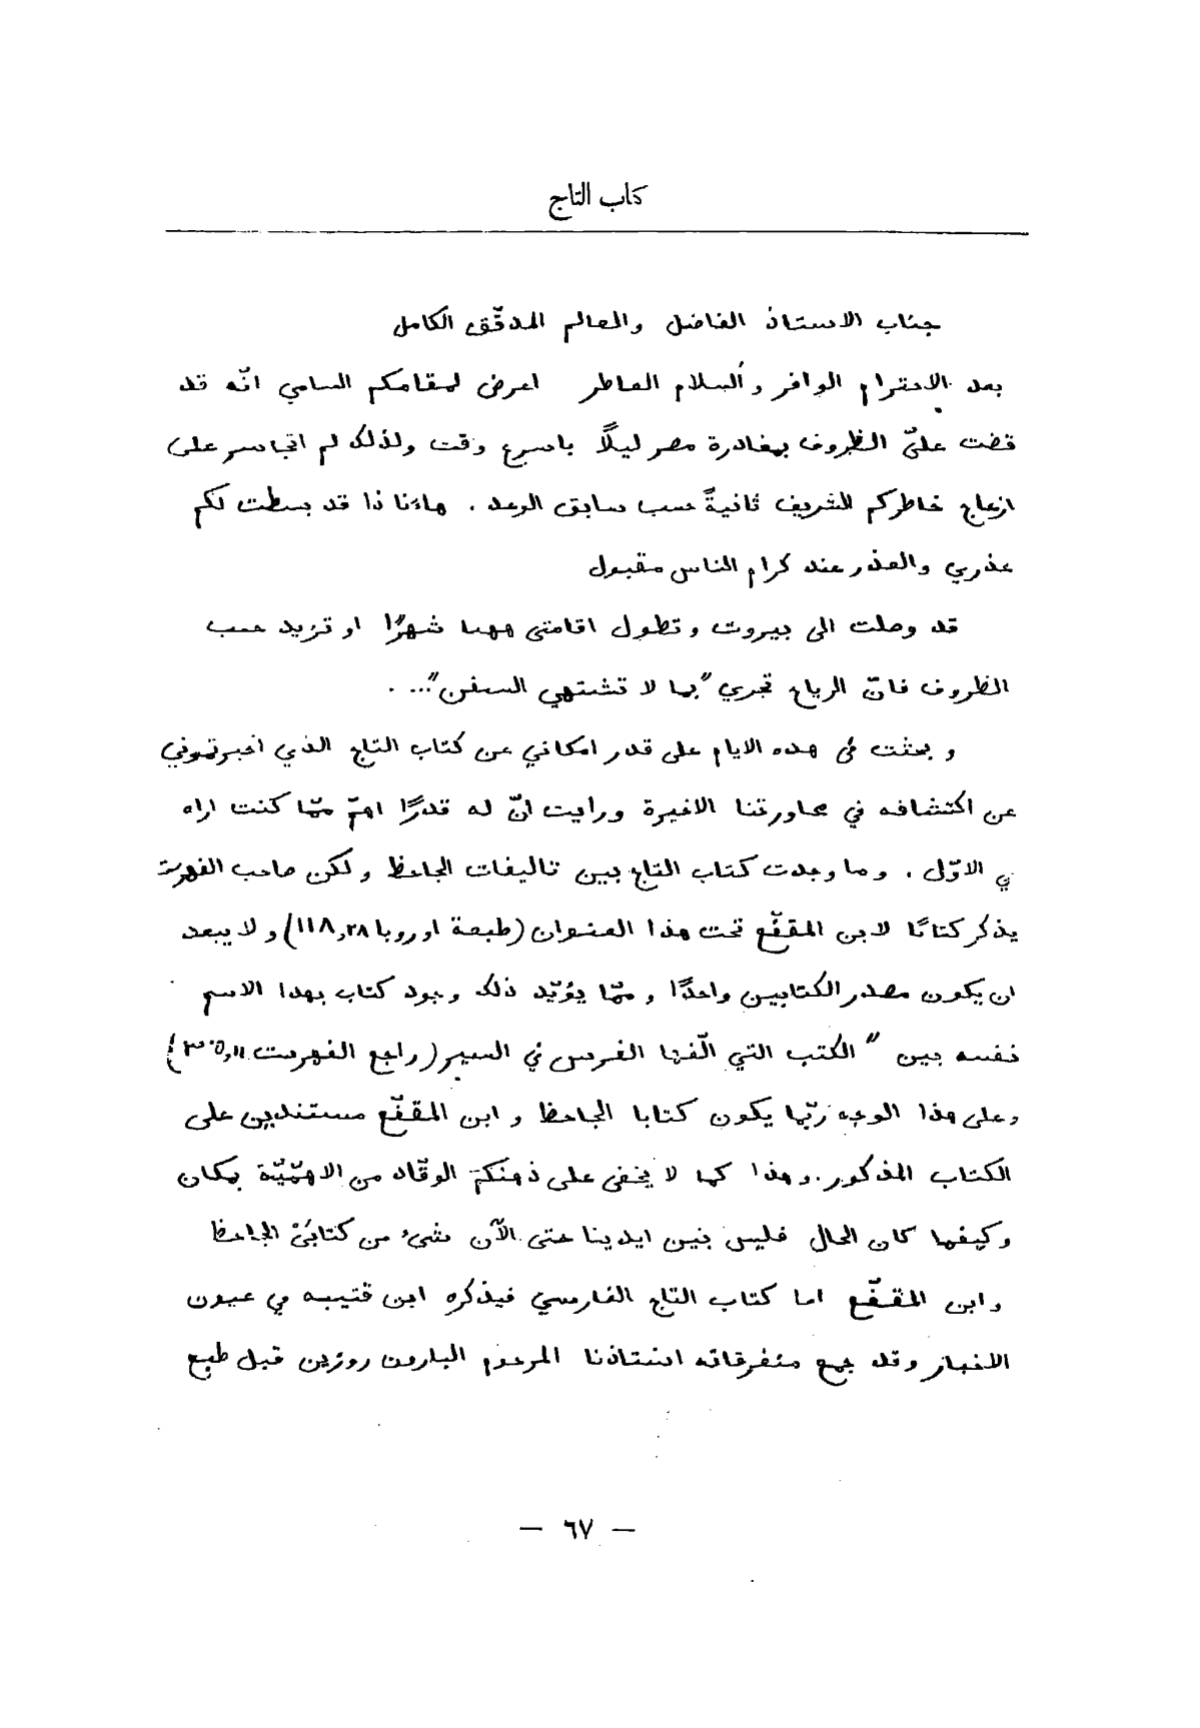 كتاب التاج
جناب الاستاذ الفاضل والعالم المدقّق الكامل
بعد الاحترام الوافر والسلام العاطر اعرض لمقامكم السامي انّه قد
قضت عليّ الظروف بمغادرة مصر ليلًا باسرع وقت ولذلك لم اتجاسر على
ازعاج خاطركم الشريف ثانيةً حسب سابق الوعد . هاءنا ذا قد بسطت لكم
عذري والعذر عند كرام الناس مقبول
قد وصلت الى بيروت وتطول اقامتى ههنا شهرًا او تزيد حسب
الظروف فانّ الرياح تجري "بما لا تشتهي السفن"... .
و بحثت في هذه الايام على قدر امكاني عن كتاب التاج الذي اخبرتموني
عن اكتشافه في محاورتنا الاخيرة ورايت انّ له قدرًا اهمّ ممّا كنت اراه
في الاوّل . وما وجدت كتاب التاج بين تاليفات الجاحظ ولكن صاحب الفهرست
يذكر كتابًا لابن المقفّع تحت هذا العنوان (طبعة اوروبا ١١٨,٢٨) ولا يبعد
ان يكون مصدر الكتابين واحدًا وممّا يؤيّد ذلك وجود كتاب بهذا الاسم
نفسه بين "الكتب التي الّفها الفرس في السير (راجع الفهرست ٣٠٥,١١)
وعلى هذا الوجه ربّما يكون كتابا الجاحظ وابن المقفّع مستندين على
الكتاب المذكور . وهذا كما لا يخفى على ذهنكم الوقّاد من الاهمّيّة بمكان
وكيفما كان الحال فليس بين ايدينا حتى الآن شيء من كتابَيْ الجاحظ
وابن المقفّع اما كتاب التاج الفارسي فيذكره ابن قتيبه في عيون
الاخبار وقد جمع متفرقاته استاذنا المرحوم البارون روزين قبل طبع
— ٦٧ —